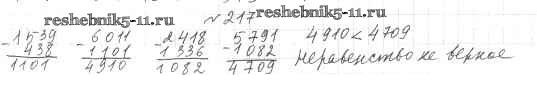 reshebnik5-11.ru № 217 reshebnik5-11.ru
-1539 -6011 -2418 -5791 4910 < 4709
438 1101 1336 1082 Неравенство не верное
1101 4910 1082 4709